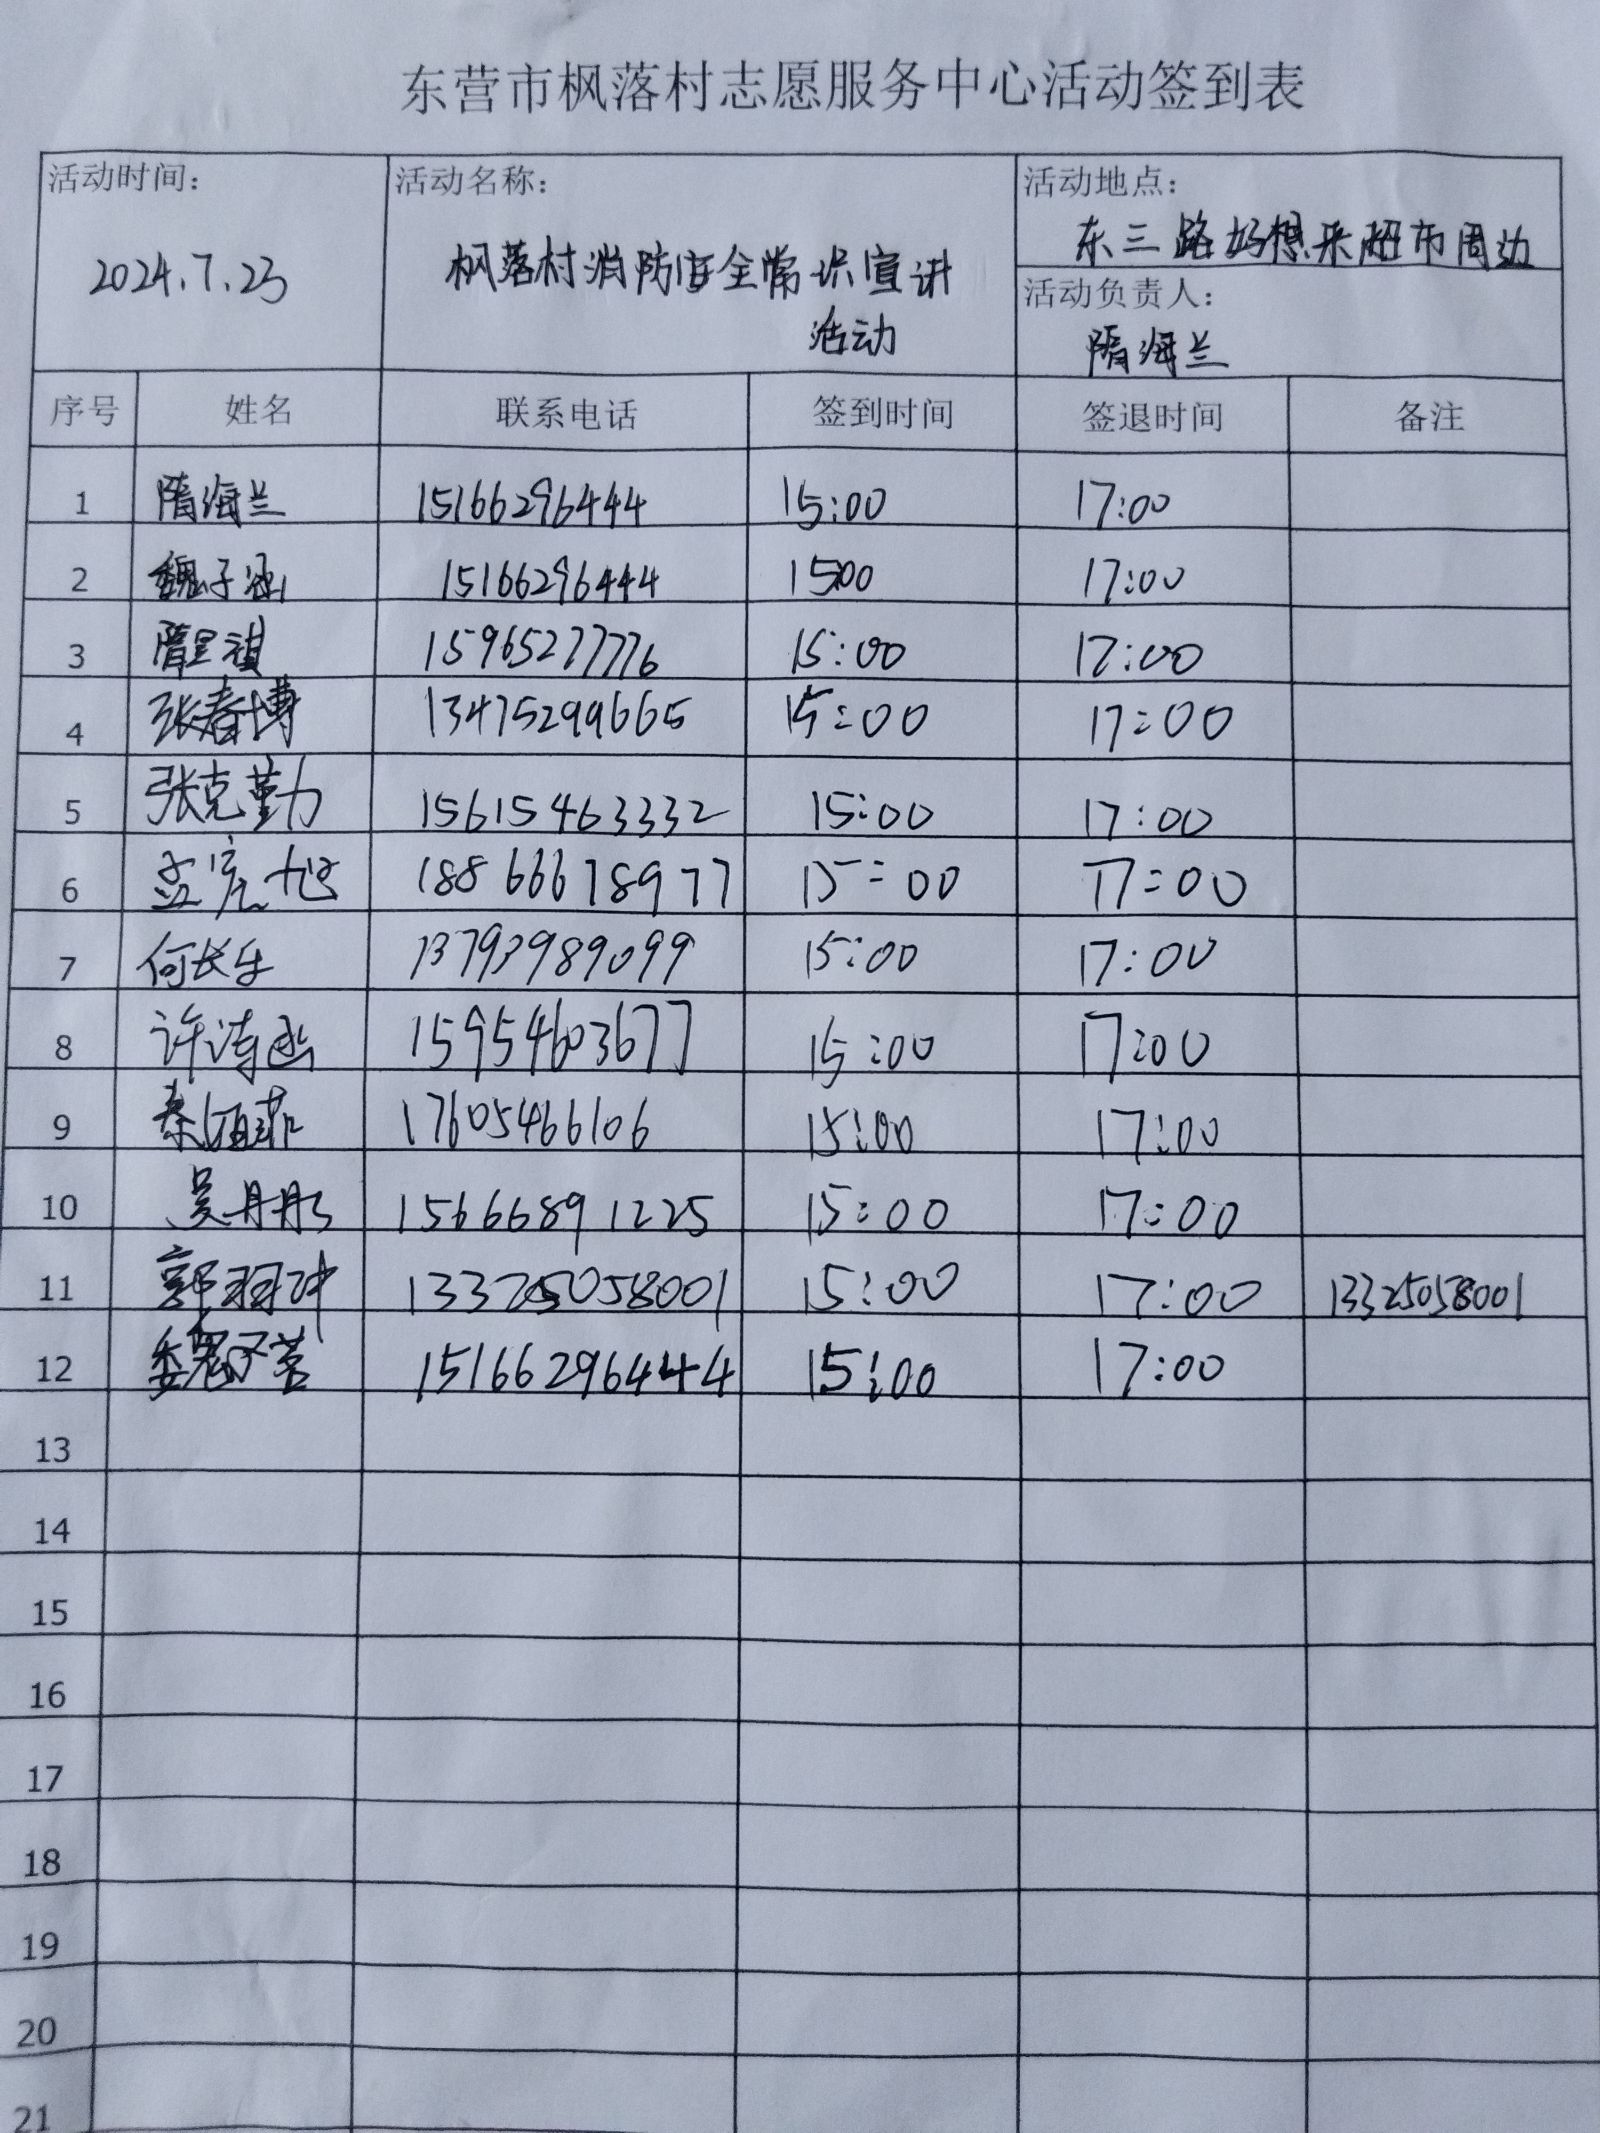 东营市枫落村志愿服务中心活动签到表
活动时间： 活动名称： 活动地点：
东三路好想来超市周边
2024.7.23 枫落村消防安全常识宣讲
活动负责人：
活动 隋海兰
序号 姓名 联系电话 签到时间 签退时间 备注
1 隋海兰 15166296444 15:00 17:00
2 魏子涵 15166296444 1500 17:00
3 隋呈祺 15965277776 15:00 17:00
4 张春博 13475299665 15:00 17:00
5 张克勤 15615463332 15:00 17:00
6 孟宪旭 18866678977 15:00 17:00
7 何长乐 13793989099 15:00 17:00
8 许涛 15954603677 15:00 17:00
9 秦 17605466106 15:00 17:00
10 吴丹彤 15666891225 15:00 17:00
11 郭羽冲 15:00 17:00 13325058001
12 魏子茗 15166296444 15:00 17:00
13
14
15
16
17
18
19
20
21